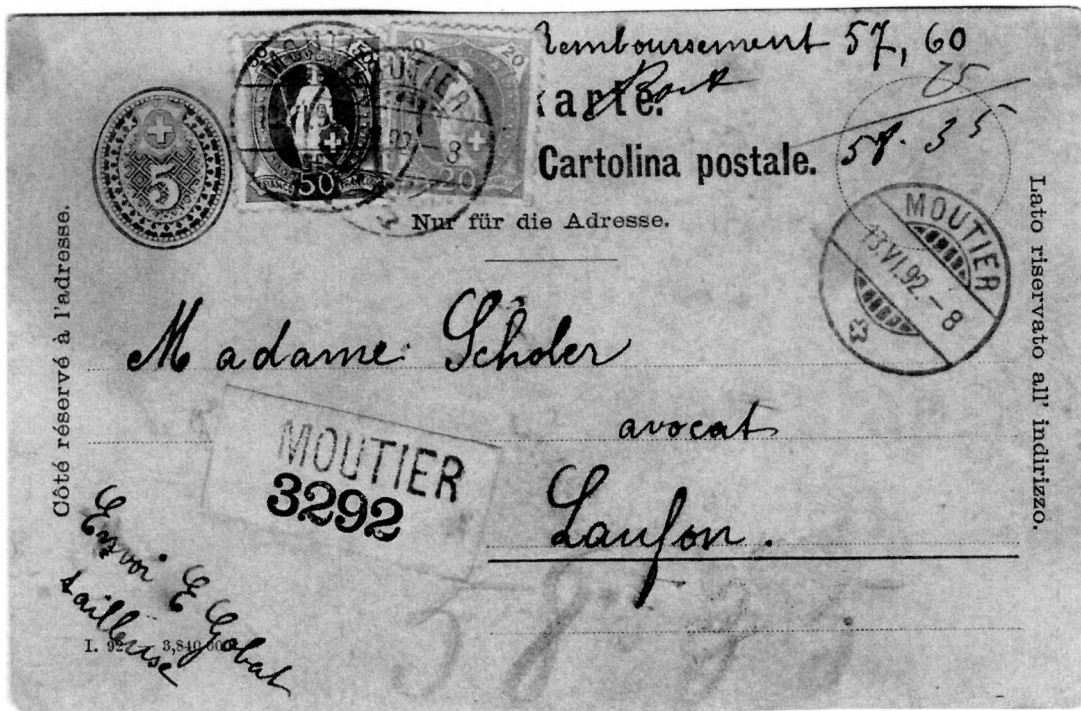 Remboursement 57,60
Port 75
58.35
karte.
Cartolina postale.
Nur für die Adresse.
5
50
FRANCO
50
20
20
MOUTIER
MOUTIER
13.VI.92.-8
Côté réservé à l'adresse.
Lato riservato all' indirizzo.
Madame Scholer
avocat
Laufon.
MOUTIER
3292
Envoi E Gobat
tailleuse
I. 92
3,840,000
58.35